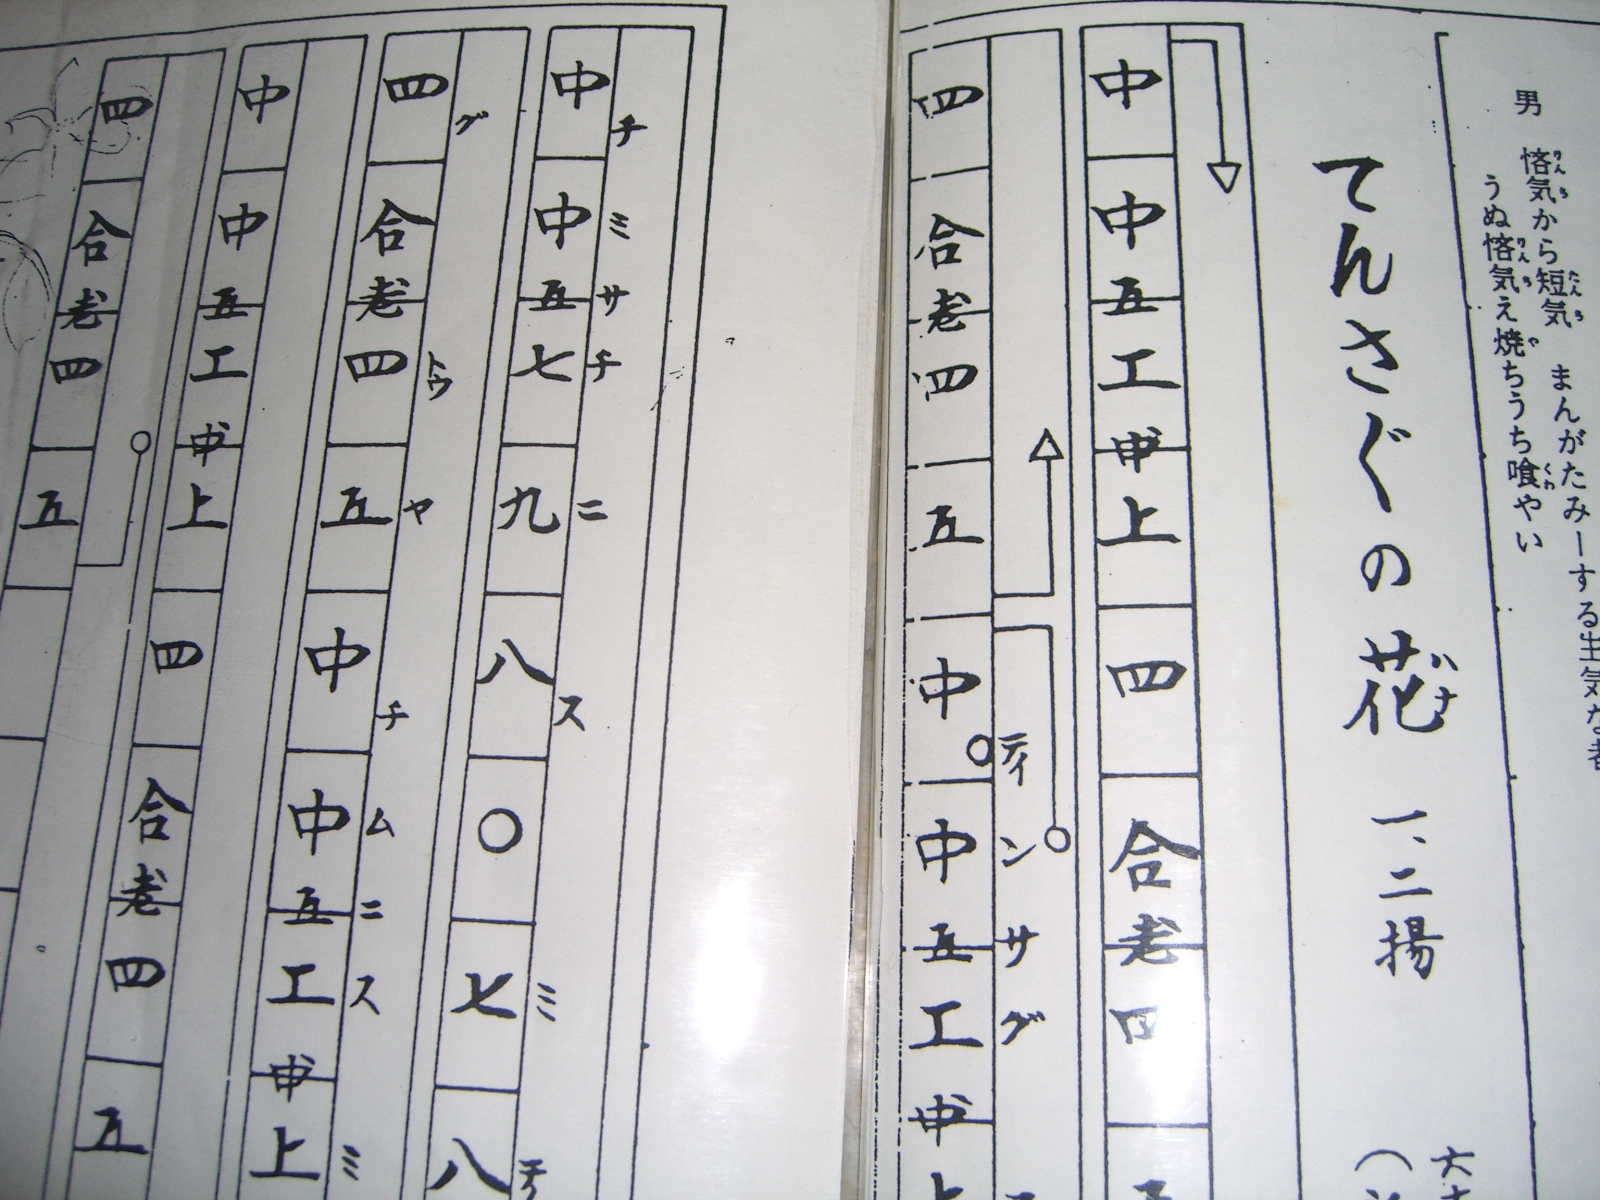 男　悋気から短気　まんがたみーする生気な者
りんち
たんち
うぬ悋気え焼ちうち喰やい
りんち
や
くわ
てんさぐの花　一、二揚
ハナ
中中五工中上四合老四
四合老四五中中五工中上
ティンサグ
中中五七九八〇七八
チミサチニスミ
四合老四五中中五工中上
グトゥヤチムニスミ
中中五工中上四合老四五
四合老四五